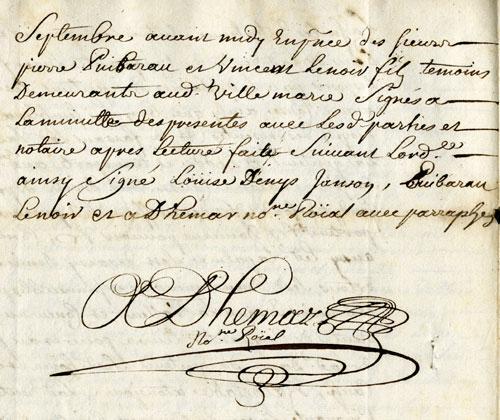 Septembre avant midy En pñce des sieurs
pierre Puibarau et Vincent Lenoir fils temoins
Demeurants aud. Ville marie Signés a
La minutte des presentes avec Lesd. parties et
notaire apres Lecture faite Suivant Lord.ce
ainsy Signé Loüise Denys Janson, Puibarau
Lenoir et aDhemar no.re Roïal avec parraphes
ADhemar
No.re Roïal